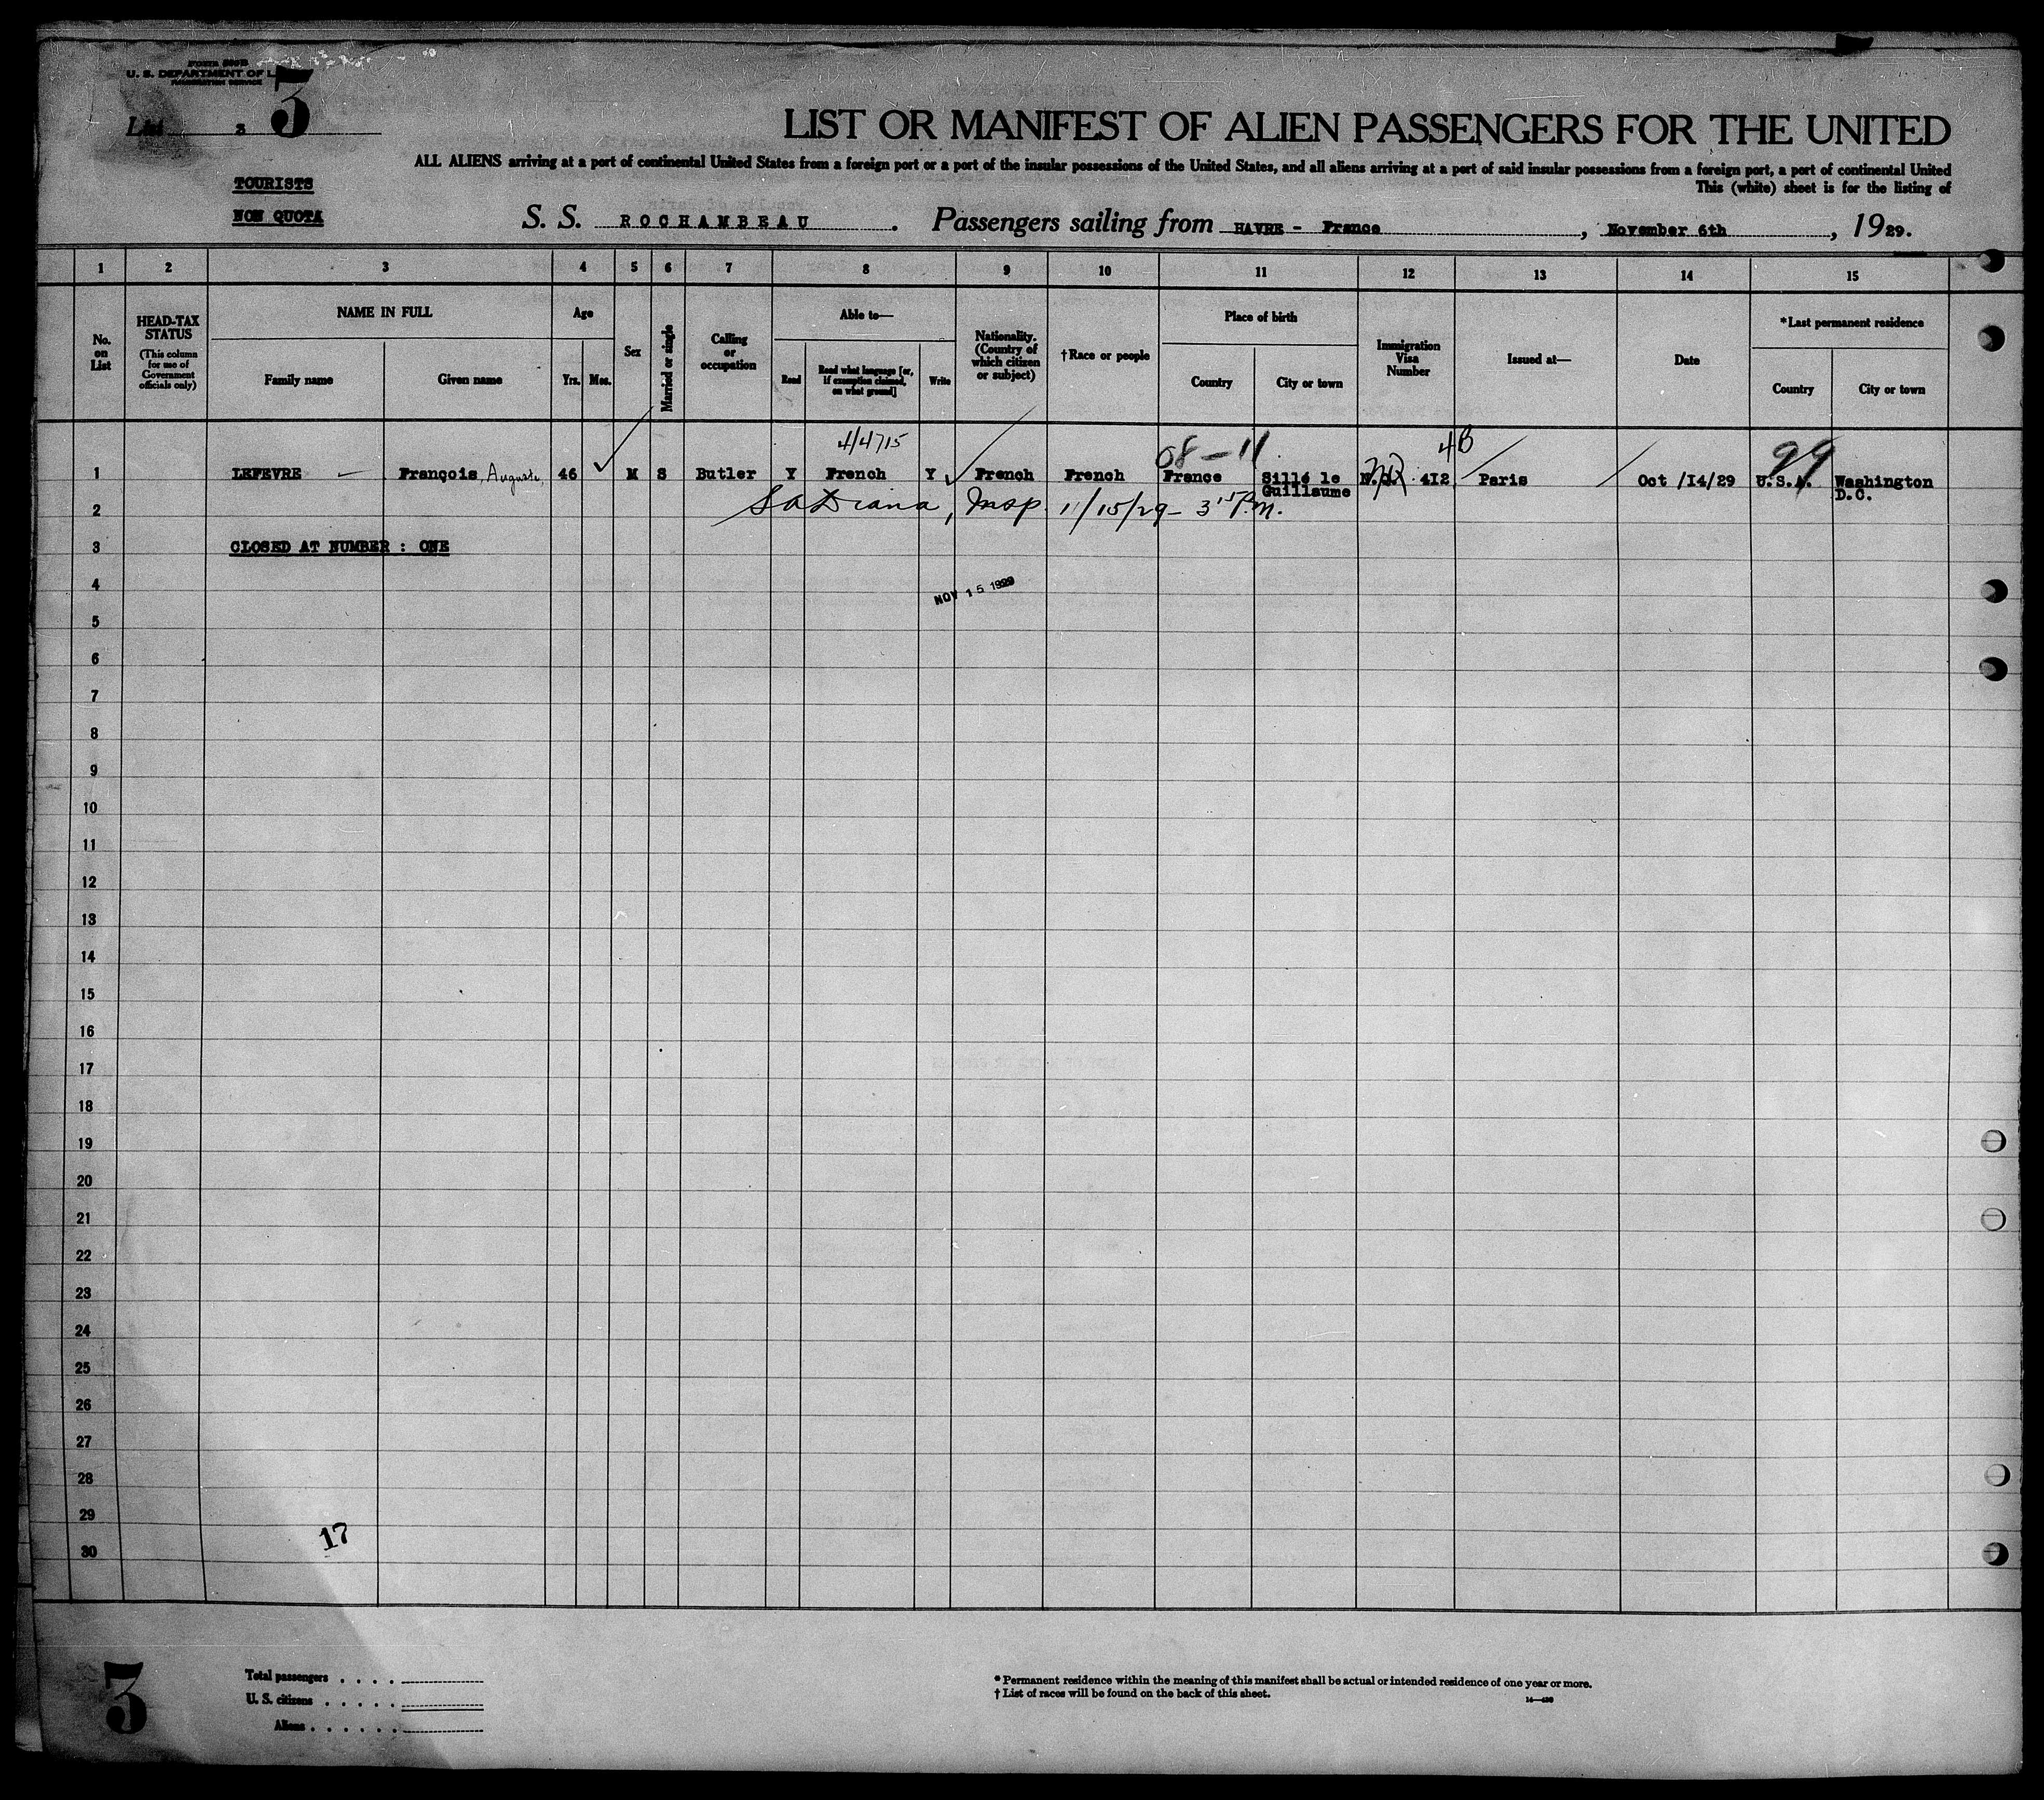 U. S. DEPARTMENT OF L
List 3
3
LIST OR MANIFEST OF ALIEN PASSENGERS FOR THE UNITED
ALL ALIENS arriving at a port of continental United States from a foreign port or a port of the insular possessions of the United States, and all aliens arriving at a port of said insular possessions from a foreign port, a port of continental United
This (white) sheet is for the listing of
TOURISTS
NON QUOTA
S. S. ROCHAMBEAU. Passengers sailing from HAVRE - France, November 6th, 1929.
1 2 3 4 5 6 7 8 9 10 11 12 13 14 15
No. on List
HEAD-TAX STATUS (This column for use of Government officials only)
NAME IN FULL
Family name
Given name
Age
Yrs.
Mos.
Sex
Married or single
Calling or occupation
Able to—
Read
Read what language [or, if exemption claimed, on what ground]
Write
Nationality. (Country of which citizen or subject)
†Race or people
Place of birth
Country
City or town
Immigration Visa Number
Issued at—
Date
*Last permanent residence
Country
City or town
4/4715
08-11
4B
99
1 LEFEVRE — François, Auguste, 46 M S Butler Y French Y French French France Sillé le Guillaume N.Q. 412 Paris Oct /14/29 U.S.A. Washington D.C.
2
Insp. 11/15/29 - 3 15 P.M.
3 CLOSED AT NUMBER : ONE
4
NOV 15 1929
5
6
7
8
9
10
11
12
13
14
15
16
17
18
19
20
21
22
23
24
25
26
27
28
29
17
30
3
Total passengers . . . .
U. S. citizens . . . . .
Aliens . . . . . .
* Permanent residence within the meaning of this manifest shall be actual or intended residence of one year or more.
† List of races will be found on the back of this sheet.